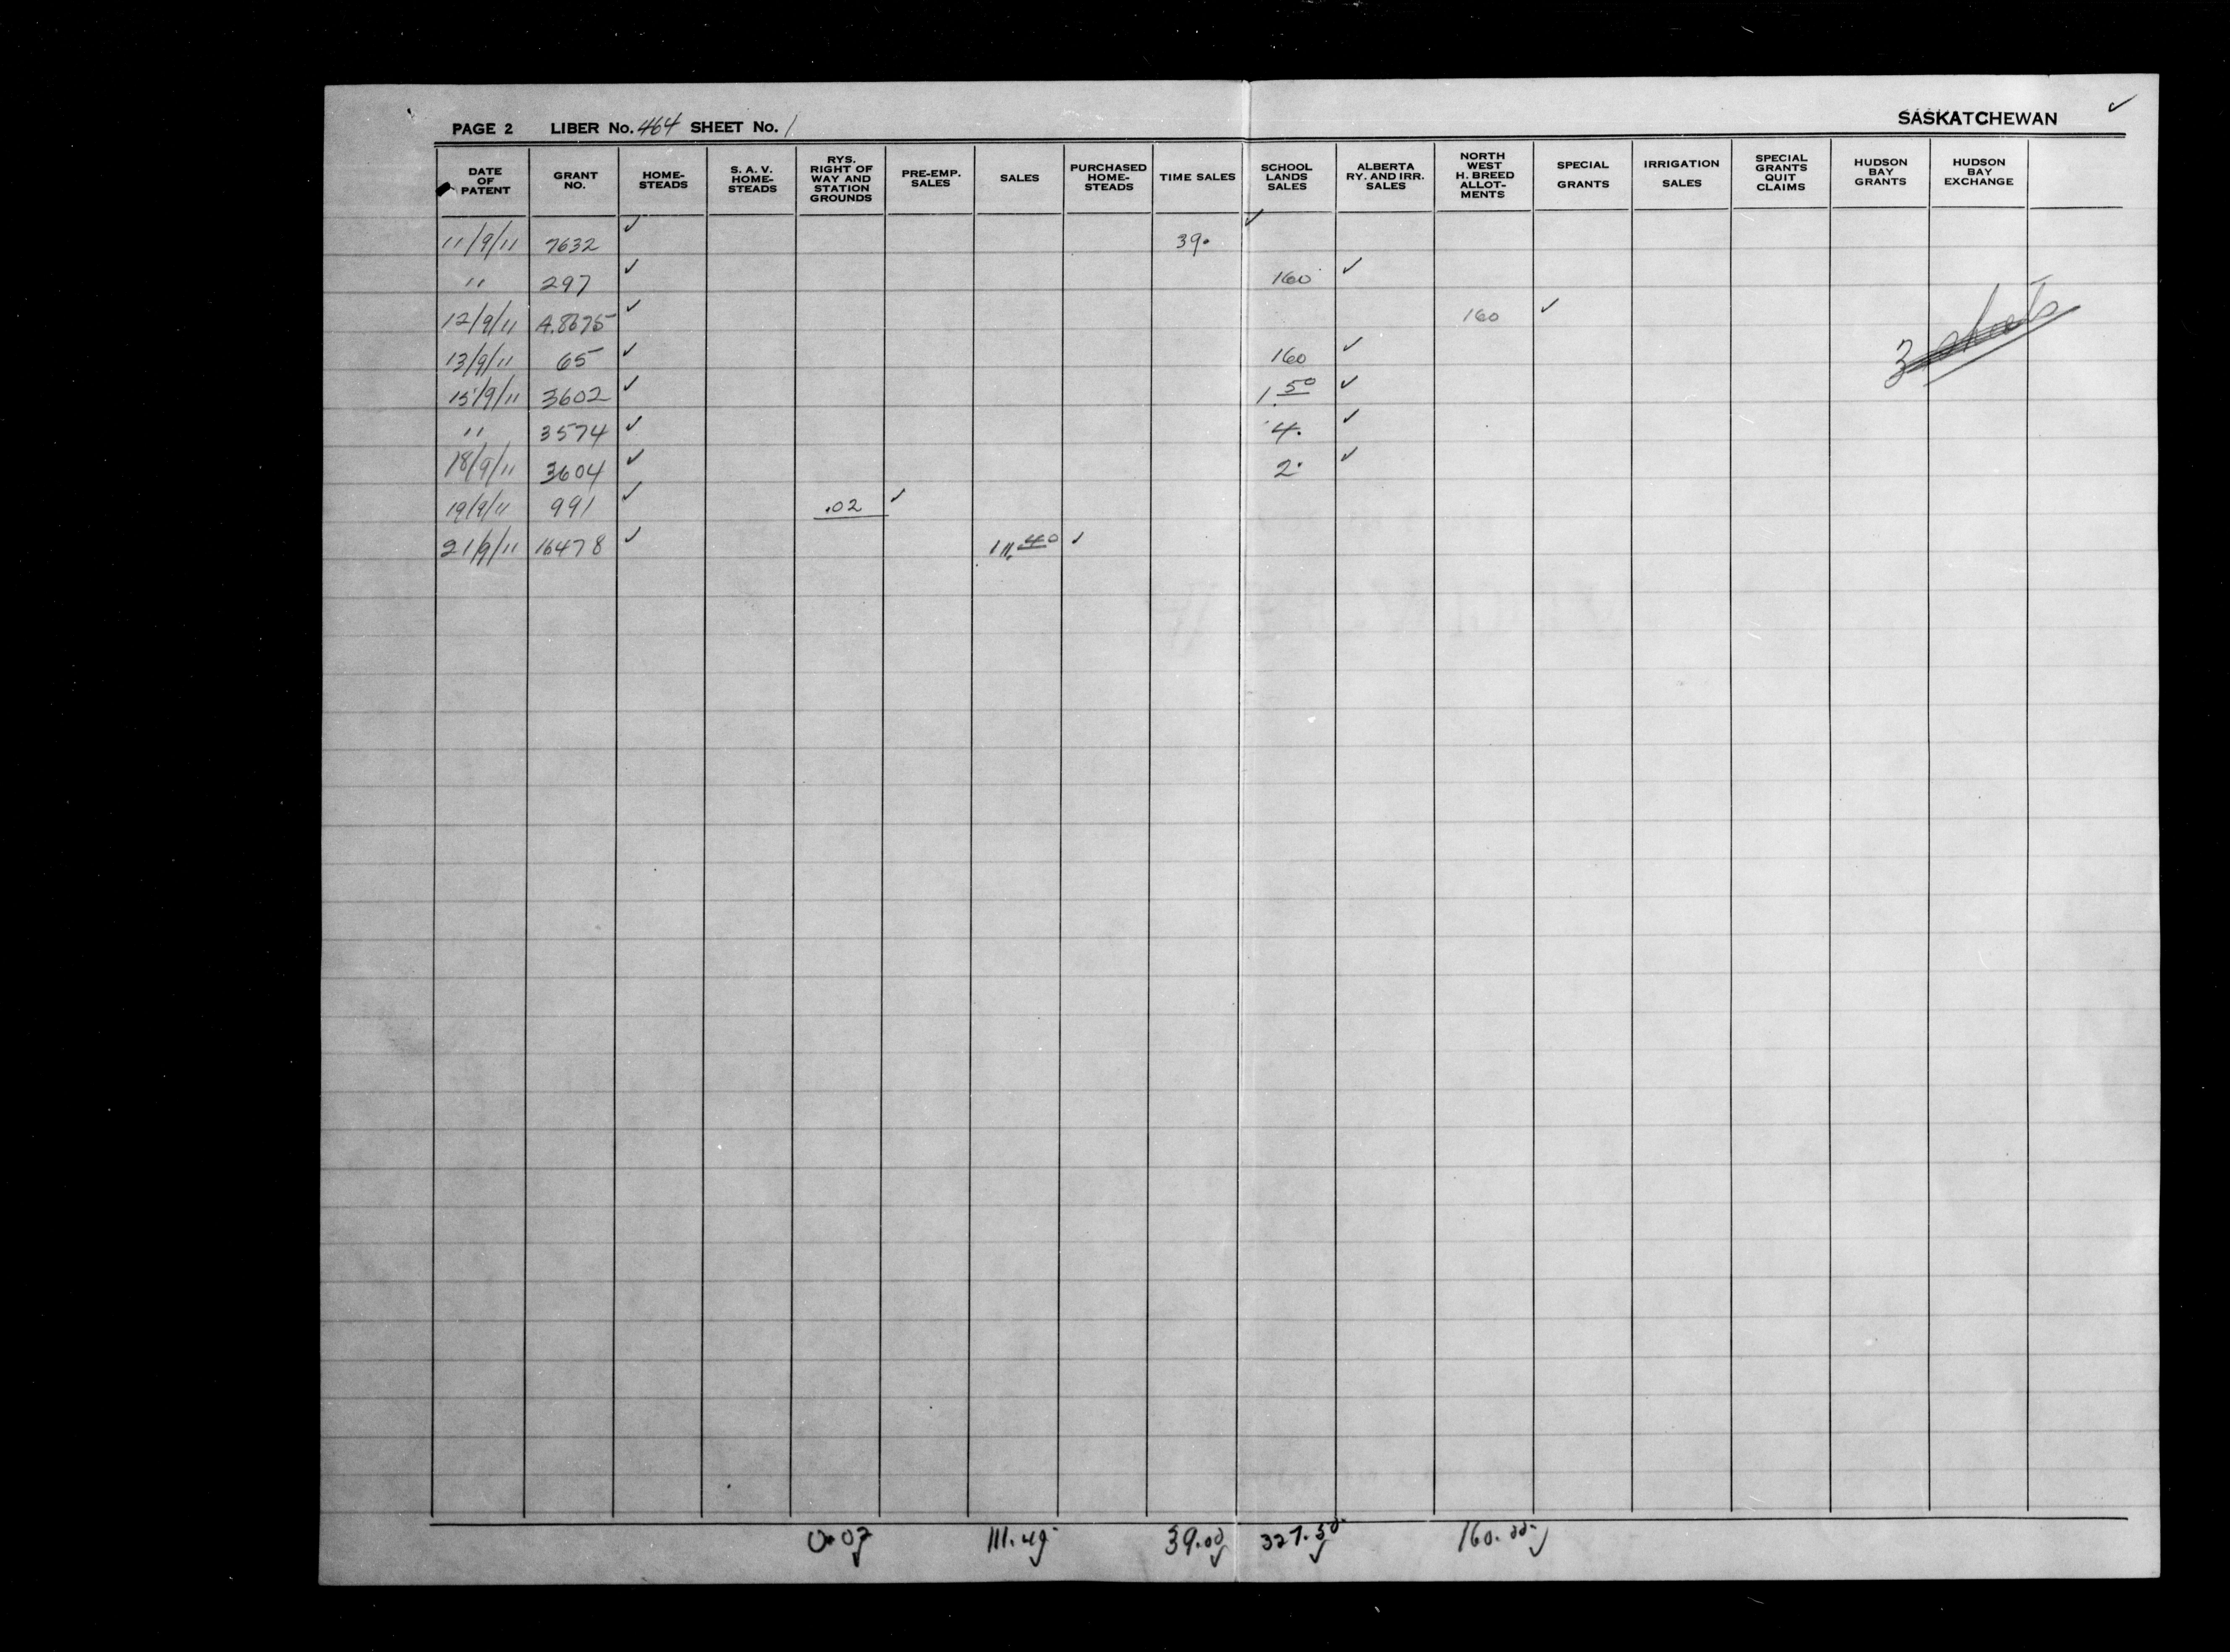 PAGE 2 LIBER No. 464 SHEET No. 1 SASKATCHEWAN ✓
DATE OF PATENT | GRANT NO. | HOME-STEADS | S. A. V. HOME-STEADS | RYS. RIGHT OF WAY AND STATION GROUNDS | PRE-EMP. SALES | SALES | PURCHASED HOME-STEADS | TIME SALES | SCHOOL LANDS SALES | ALBERTA RY. AND IRR. SALES | NORTH WEST H. BREED ALLOT-MENTS | SPECIAL GRANTS | IRRIGATION SALES | SPECIAL GRANTS QUIT CLAIMS | HUDSON BAY GRANTS | HUDSON BAY EXCHANGE
11/9/11 7632 ✓ 39. ✓
" 297 ✓ 160 ✓
12/9/11 A.8675 ✓ 160 ✓
3 sheets
13/9/11 65 ✓ 160 ✓
15/9/11 3602 ✓ 1.50 ✓
" 3574 ✓ 4. ✓
18/9/11 3604 ✓ 2. ✓
19/9/11 991 ✓ .02 ✓
21/9/11 16478 ✓ 111.40 ✓
0.02 111.40 39.00 327.50 160.00